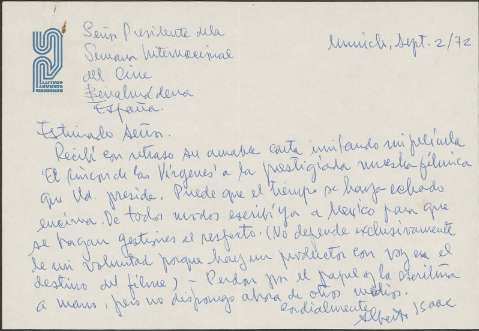 Señor Presidente de la
Semana Internacional
del Cine
Benalmádena
España.
Munich, Sept. 2/72
Estimado Señor.
Recibí con retraso su amable carta invitando mi película
"El Rincón de las Vírgenes" a la prestigiada muestra fílmica
que Ud. preside. Puede que el tiempo se haya echado
encima. De todos modos escribí ya a México para que
se hagan gestiones al respecto. (No depende exclusivamente
de mi voluntad porque hay un productor con voz en el
destino del filme) - Perdon por el papel y la escritura
a mano, pero no dispongo ahora de otros medios.
Cordialmente
Alberto Isaac